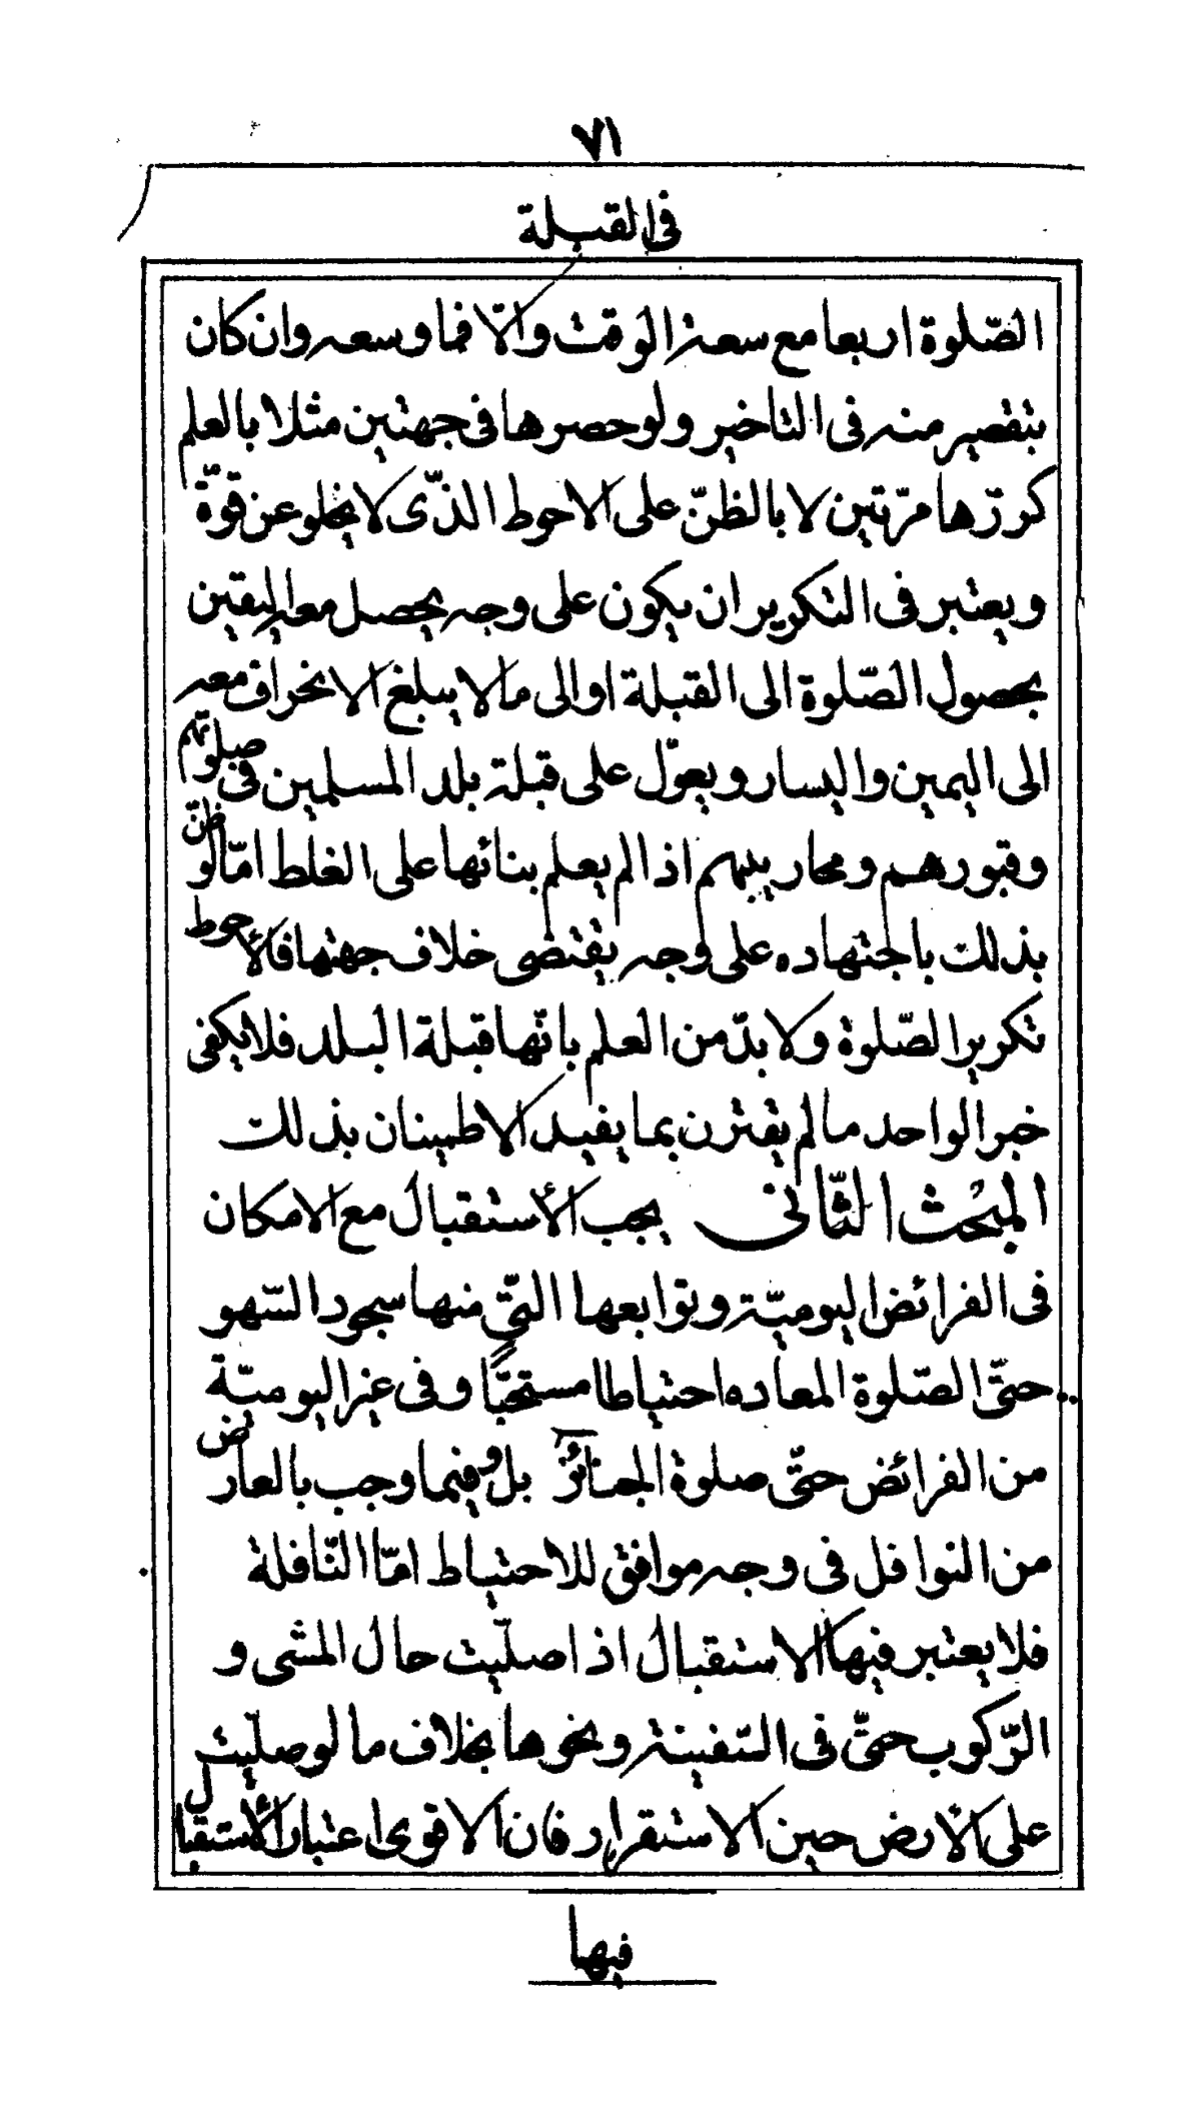 ٧١
فى القبلة
الصّلوة اربعا مع سعة الوقت والّا فما وسعه وان كان
بتقصير منه فى التاخير ولو حصرها فى جهتين مثلا بالعلم
كررّها مرّتين لا بالظنّ على الاحوط الذّى لا يخلو عن قوّة
ويعتبر فى التكرير ان يكون على وجه يحصل معه اليقين
بحصول الصّلوة الى القبلة او الى مالا يبلغ الانحراف معه
الى اليمين واليسار ويعوّل على قبلة بلد المسلمين فى صلوتهم
وقبورهم ومحاريبهم اذا لم يعلم بنائها على الغلط امّا لو ظنّ
بذلك باجتهاده على وجه يقتضى خلاف جهتها فالأحوط
تكرير الصّلوة ولا بدّ من العلم بانّها قبلة البلد فلا يكفى
خبر الواحد مالم يقترن بما يفيد الاطمينان بذلك
المبْحث الثّانى يجب الأستقبال مع الامكان
فى الفرائض اليوميّة وتوابعها التّى منها سجود السّهو
حتّى الصّلوة المعاده احتياطا مستحبًّا وفى غير اليوميّة
من الفرائض حتّى صلوة الجنائز بل وفيما وجب بالعارض
من النوافل فى وجه موافق للاحتياط امّا النّافلة
فلا يعتبر فيها الاستقبال اذا صلّيت حال المشى و
الرّكوب حتّى فى السّفينة ونحوها بخلاف ما لو صلّيت
على الأرض حين الاستقرار فان الاقوى اعتبار الأستقبال
فيها